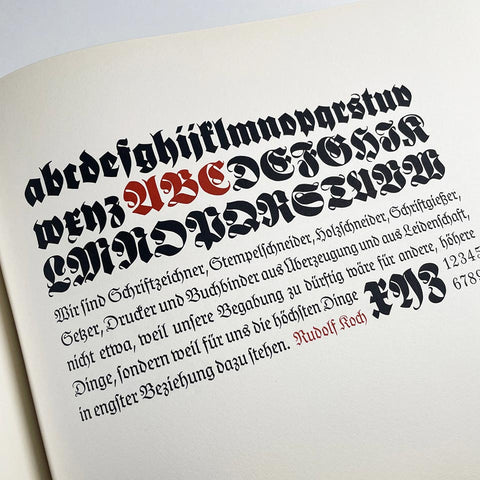 abcdefghijklmnopqrstuv
wxyzABCDEFGHIK
LMNOPQRSTUVW
Wir sind Schriftzeichner, Stempelschneider, Holzschneider, Schriftgießer,
Setzer, Drucker und Buchbinder aus Überzeugung und aus Leidenschaft,
nicht etwa, weil unsere Begabung zu dürftig wäre für andere, höhere
Dinge, sondern weil für uns die höchsten Dinge XYZ 12345
in engster Beziehung dazu stehen. Rudolf Koch 6789